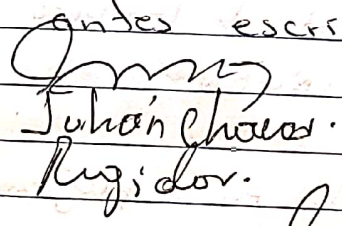 antes escri
Julián Chaves.
Regidor.